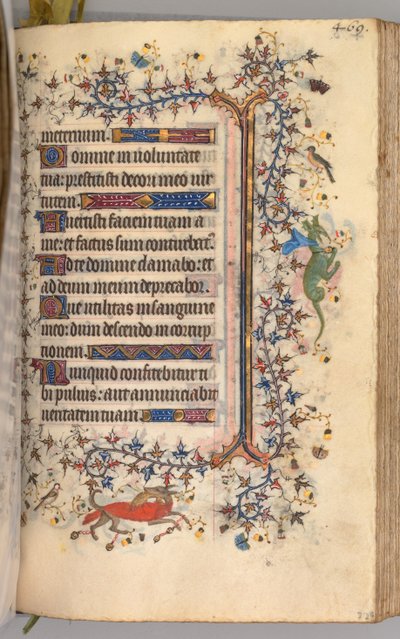 469.
meternum.
Domine in uoluntate
tua: prestitisti decori meo uir
tutem.
Auertisti faciem tuam a
me: et factus sum conturbat'.
Ad te domine clamabo: et
ad deum meum deprecabor.
Que utilitas in sanguine
meo: dum descendo in corrup
tionem.
Nunquid confitebitur ti
bi puluis: aut annunciabit
ueritatem tuam.